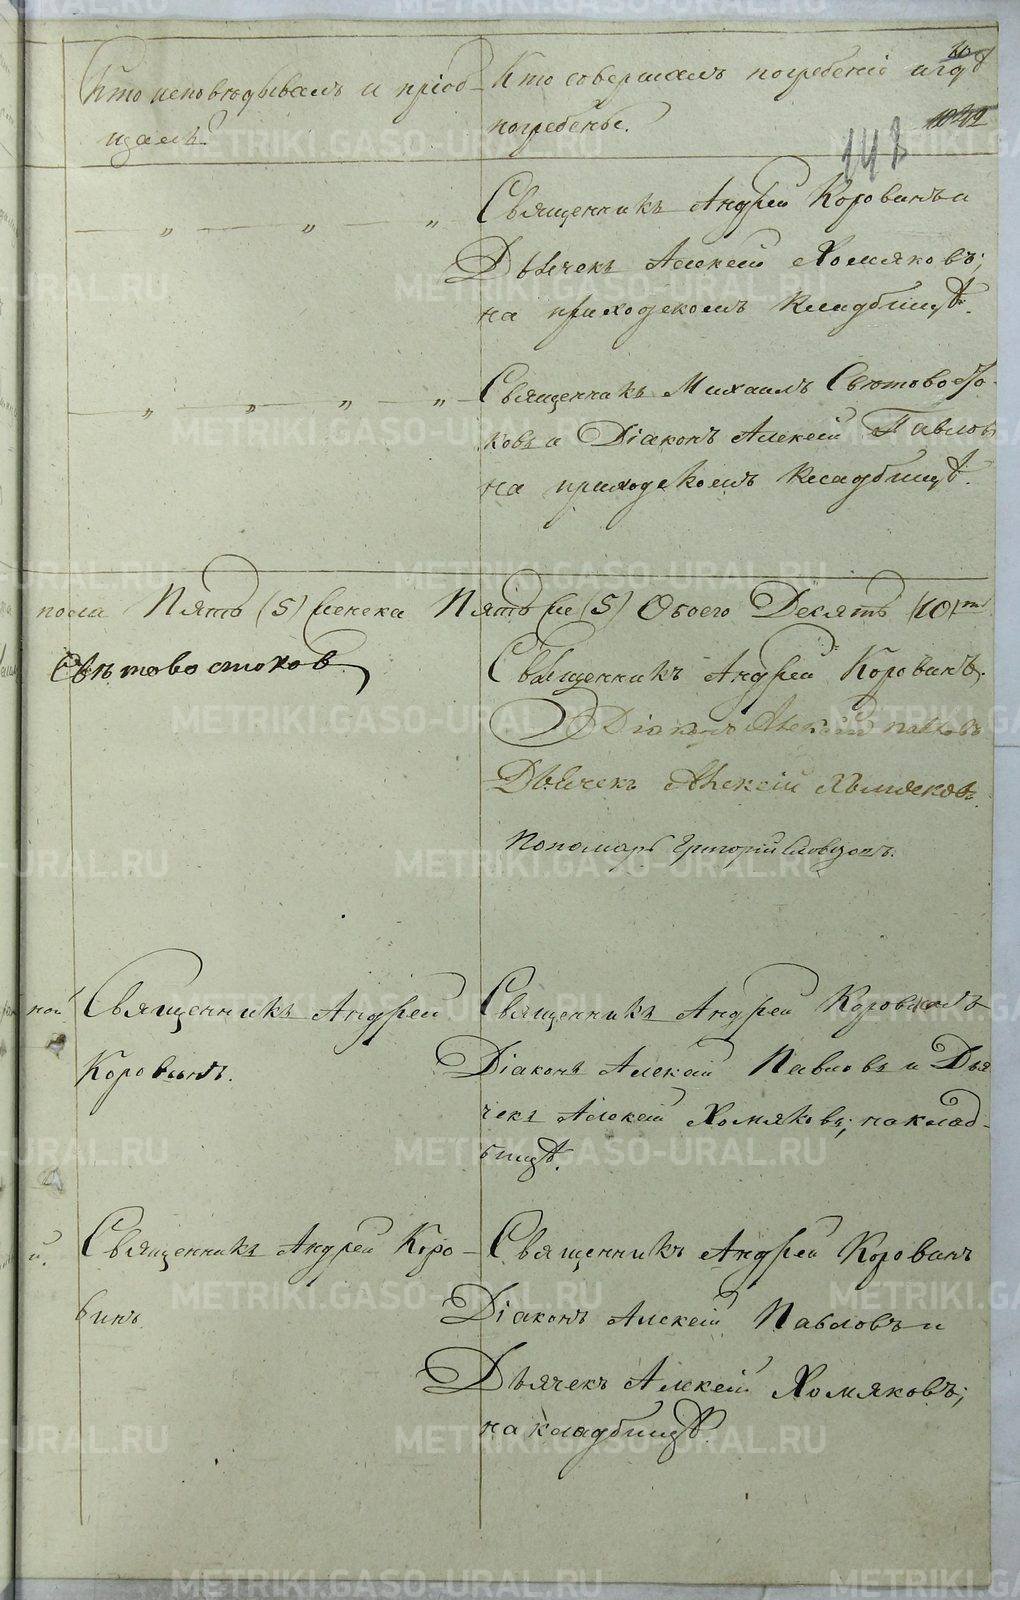 Кто исповѣдывалъ и пріоб-
щалъ?
Кто совершалъ погребеніе и гдѣ
погребены.
148
Священникъ Андрей Коровинъ и
Дьячекъ Алексій Хомяковъ;
на приходскомъ кладбищѣ.
Священникъ Михаилъ Свѣтовосто-
ковъ и Діаконъ Алексій Павловъ
на приходскомъ кладбищѣ.
пола Пять (5) женска Пять (5) Обоего Десять (10)ть
Свѣтовостоков
Священникъ Андрей Коровинъ.
Діаконъ Алексій Павловъ
Дьячекъ Алексій Хомяковъ
Пономарь Григорій Словцовъ.
ной
Священникъ Андрей
Коровинъ.
Священникъ Андрей Коровинъ
Діаконъ Алексій Павловъ и Дья
чекъ Алексій Хомяковъ; на клад-
бищѣ.
й.
Священникъ Андрей Коро-
винъ.
Священникъ Андрей Коровинъ
Діаконъ Алексій Павловъ и
Дьячекъ Алексій Хомяковъ;
на кладбищѣ.
METRIKI.GASO-URAL.RU